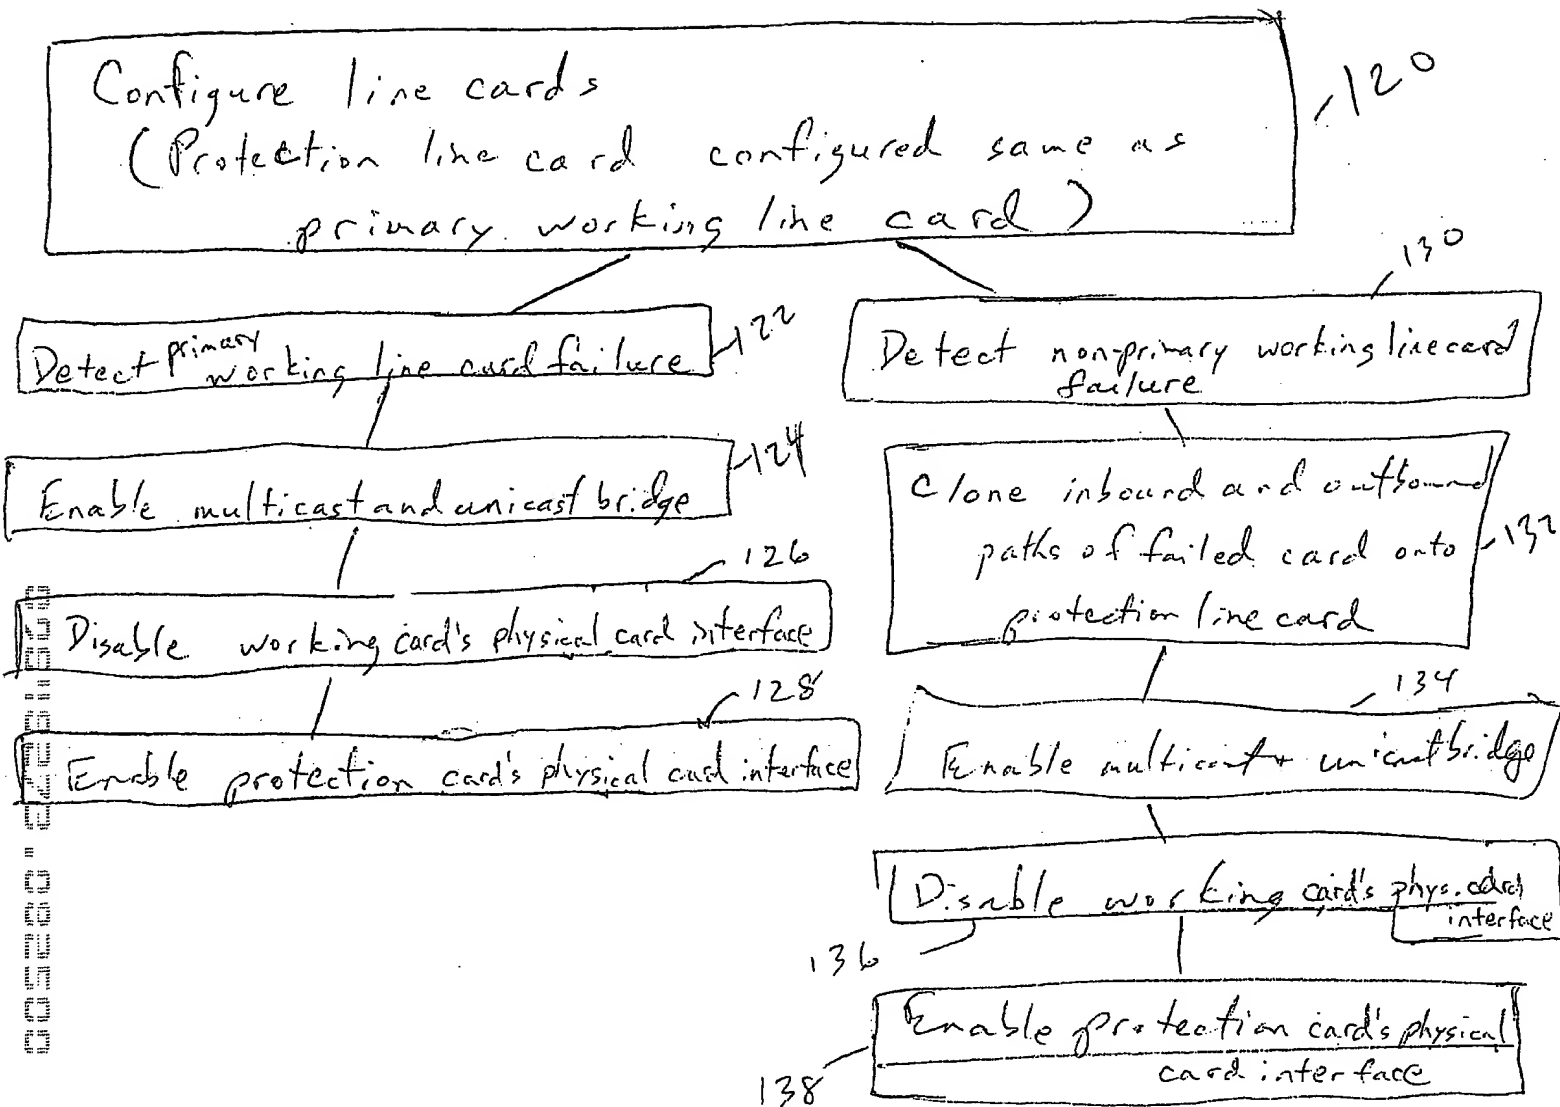 Configure line cards
(Protection line card configured same as
primary working line card)
120
Detect primary working line card failure
122
Enable multicast and unicast bridge
124
Disable working card's physical card interface
126
Enable protection card's physical card interface
128
130
Detect non-primary working line card
failure
Clone inbound and outbound
paths of failed card onto
protection line card
132
134
Enable multicast + unicast bridge
Disable working card's phys. card
interface
136
Enable protection card's physical
card interface
138